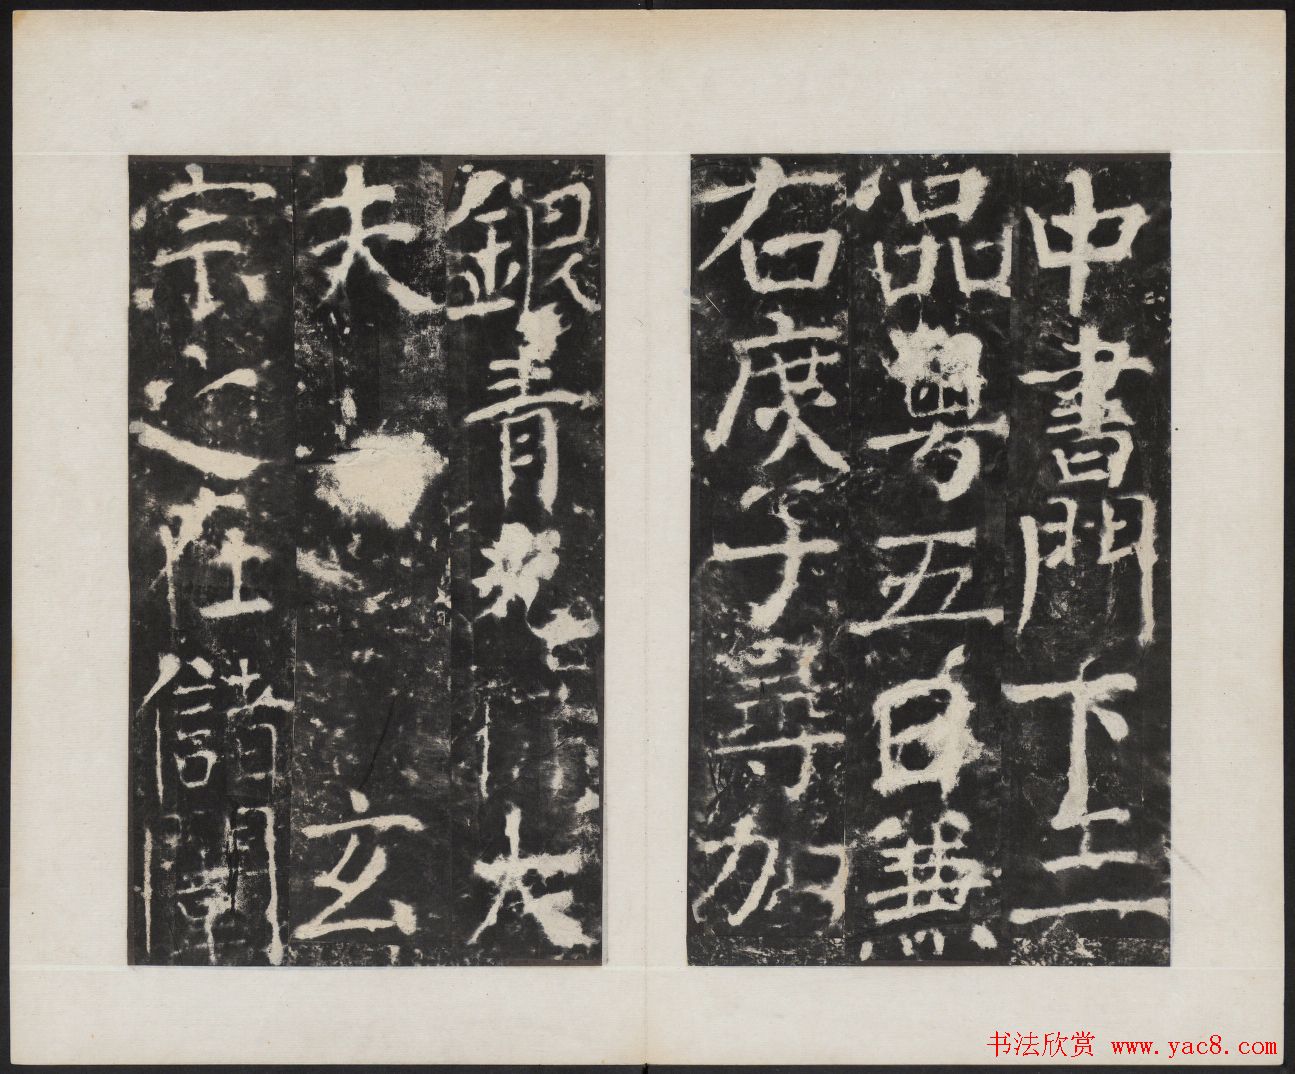 中書門下三
品粤五日兼
右庶子尋加
銀青光祿大
夫玄
宗之在儲闈
书法欣赏 www.yac8.com